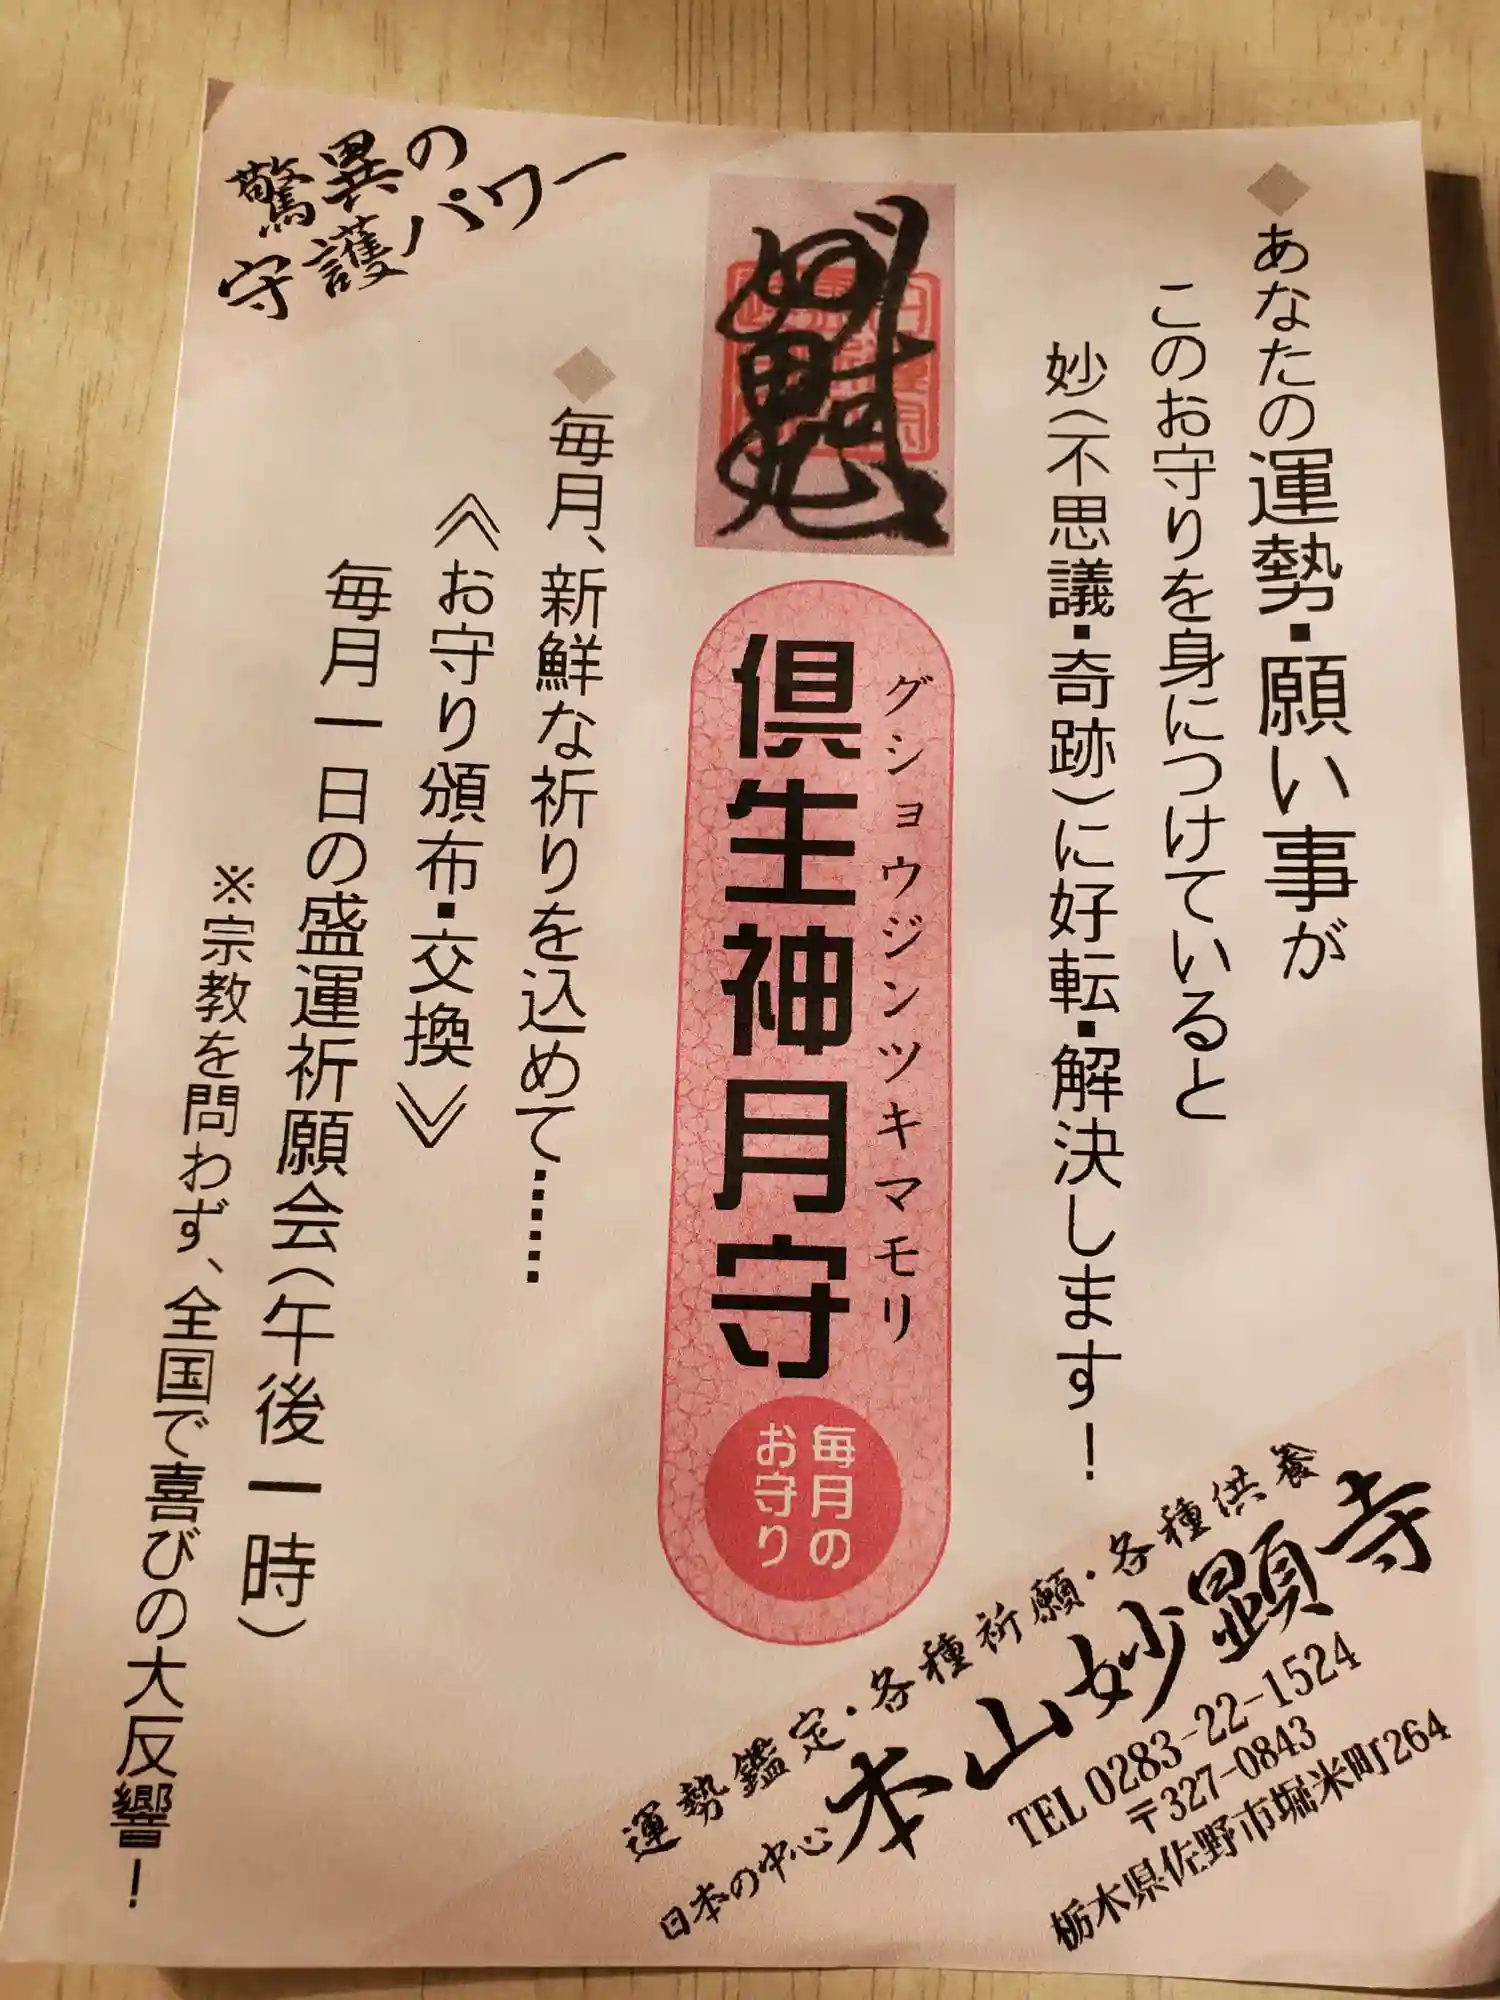 驚異の
守護パワー
◆あなたの運勢・願い事が
このお守りを身につけていると
妙(不思議・奇跡)に好転・解決します!
グショウジンツキマモリ
倶生神月守
毎月の
お守り
◆毎月、新鮮な祈りを込めて……
《お守り頒布・交換》
毎月一日の盛運祈願会(午後一時)
※宗教を問わず、全国で喜びの大反響!
運勢鑑定・各種祈願・各種供養
日本の中心 本山妙顕寺
TEL 0283-22-1524
〒327-0843
栃木県佐野市堀米町264